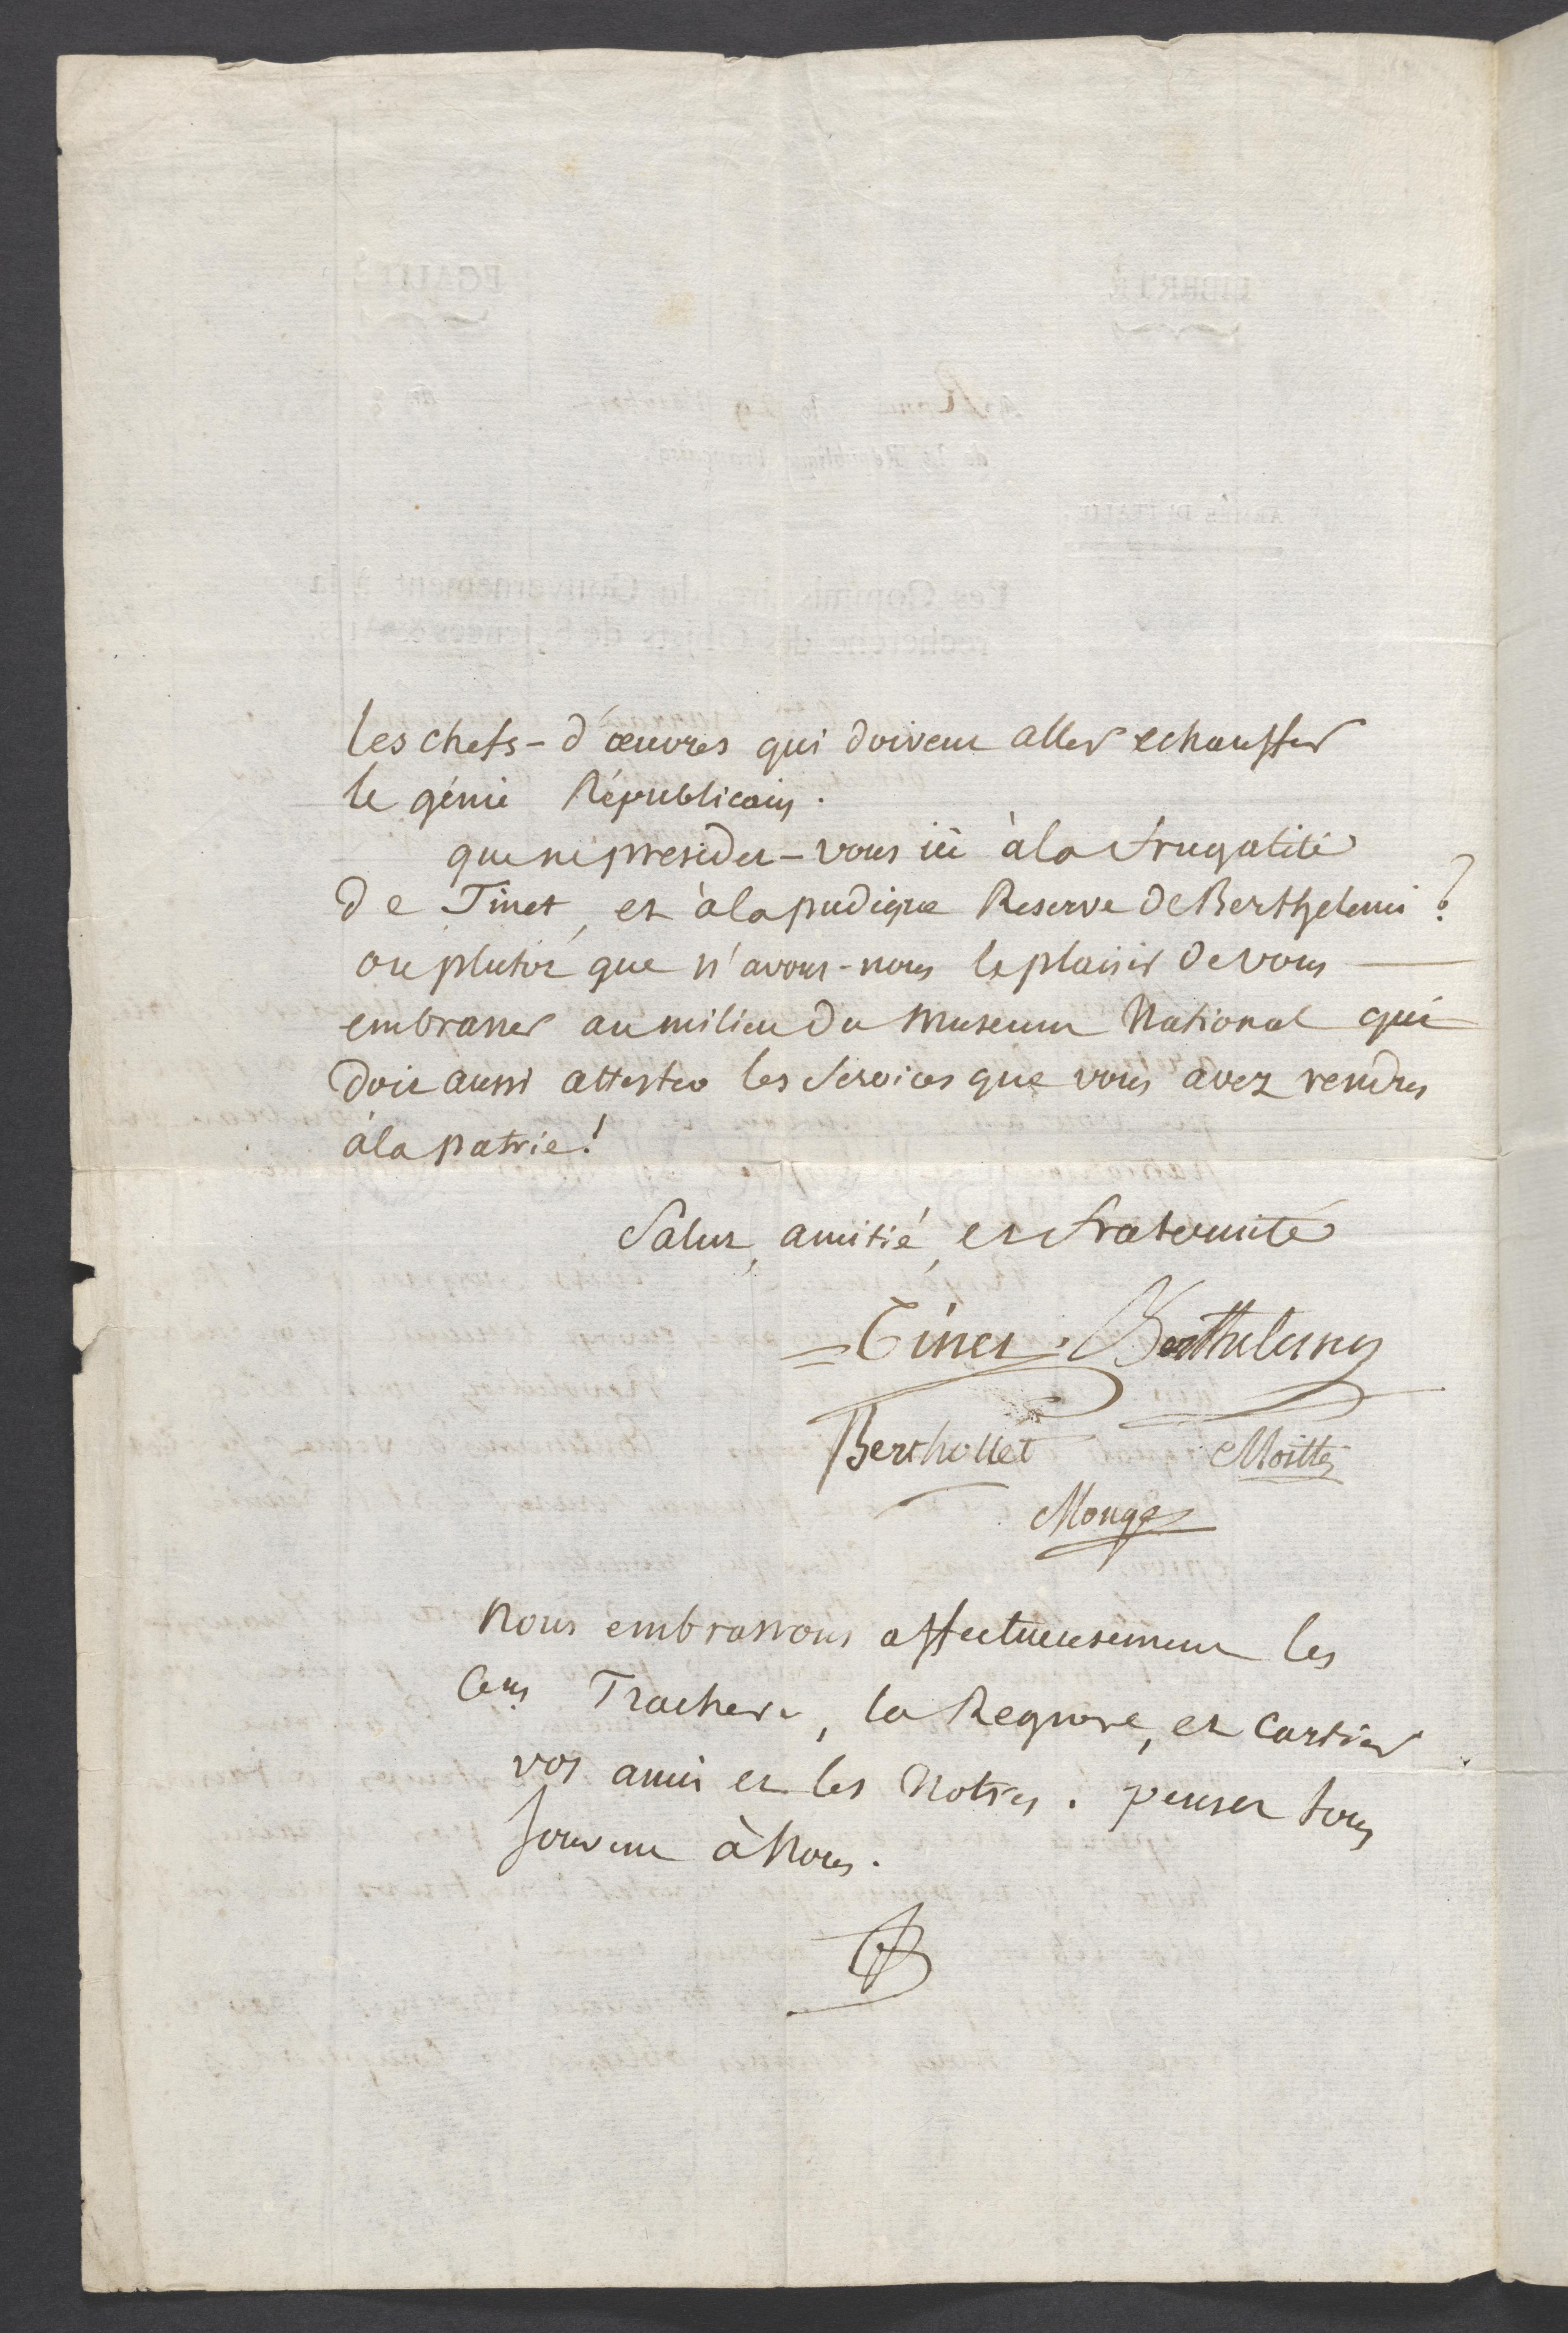 les chefs-d'œuvres qui doivent aller echauffer
le génie Républicain.
que ne presidez-vous ici à la frugalité
de Tinet, et à la pudique Reserve de Berthelemi ?
ou plutot que n'avons-nous le plaisir de vous
embrasser au milieu du Museum National qui
doit aussi attester les services que vous avez rendus
à la patrie !
Salut, amitié, et fraternité
Tinet. Berthelemy
Berthollet Moitte
Monge
Nous embrassons affectueusement les
Cens et Cartier
vos amis et les Notres. penser tous
souvent à Nous.